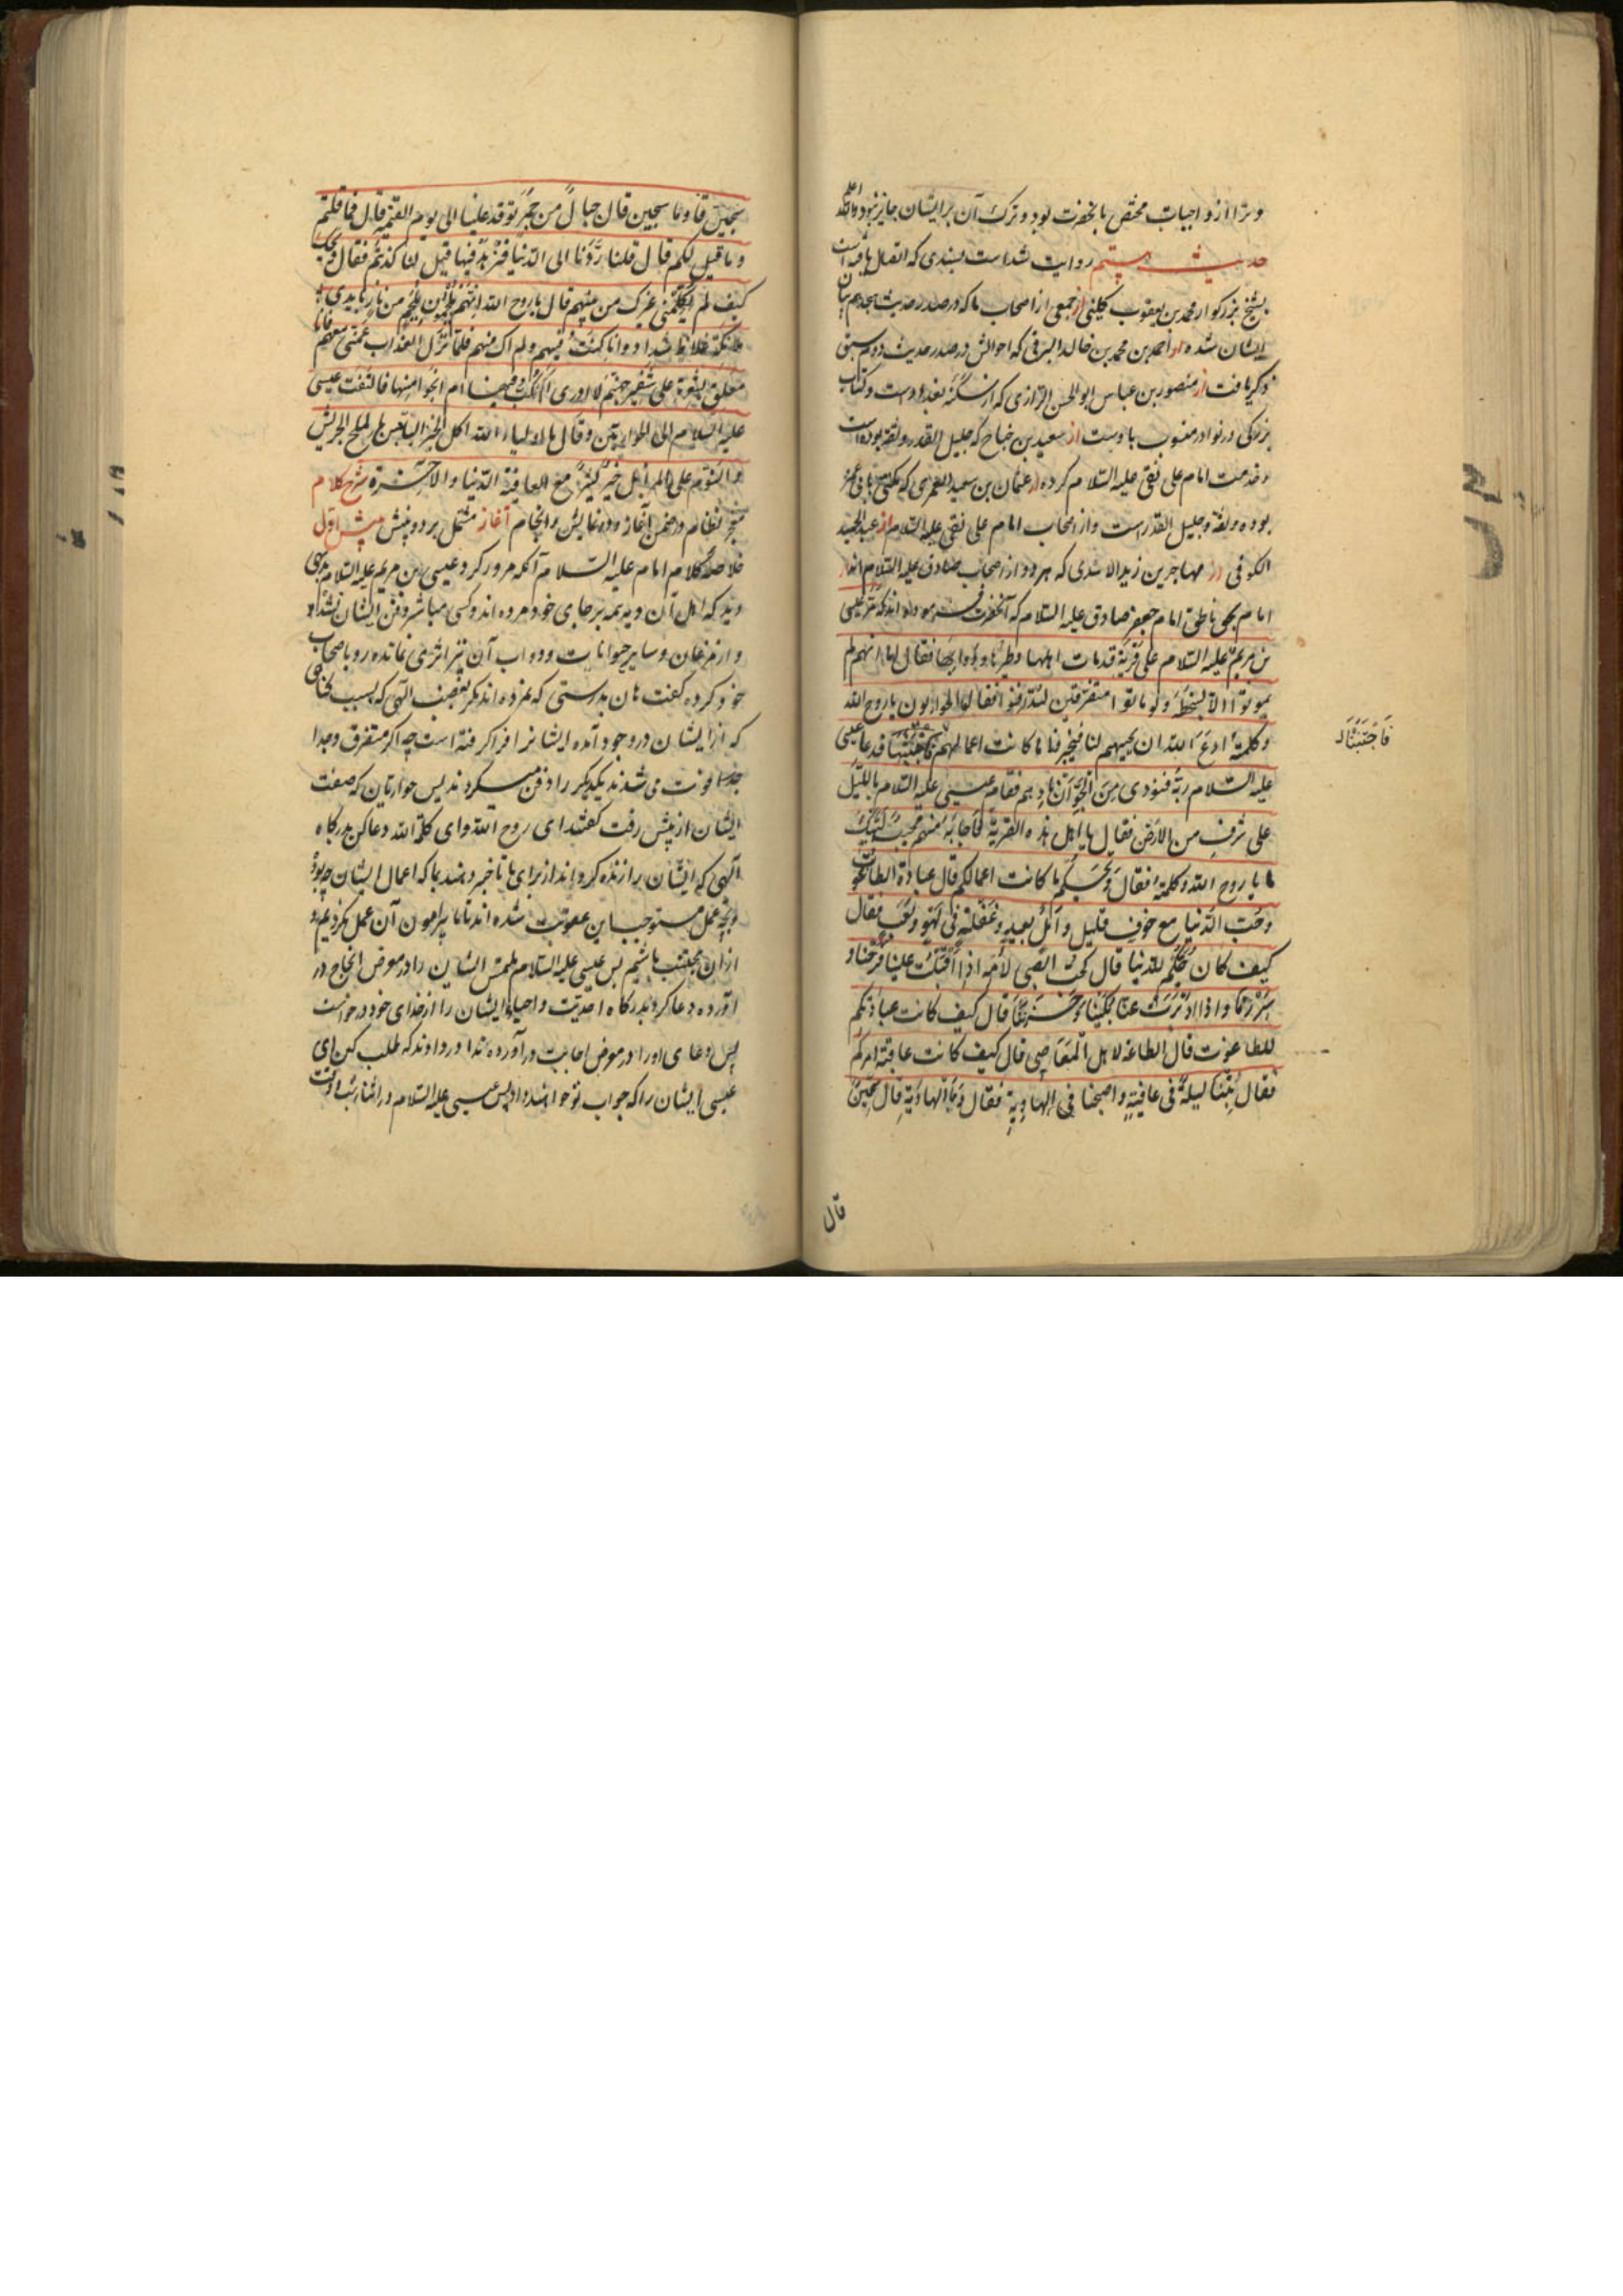 و ترا از واجبات مختص بآنحضرت بود و ترک آن بر ایشان جایز نبود والله اعلم
حدیث بیستم روایت شده است بسندی که اتصال یافته است
بشیخ بزرکوار محمد بن یعقوب کلینی از جمعی از اصحاب ما که در صدر حدیث هجدهم بیان
ایشان شده از احمد بن محمد بن خالد البرقی که احوالش در صدر حدیث دوم سبق
ذکر یافت از منصور بن عباس ابو الحسن الرازی که از سکنه بغداد است و کتاب
بزرکی در نوادر منسوب باوست از سعید بن جناح که جلیل القدر و ثقه بوده است
و خدمت امام علی نقی علیه السلام کرده از عثمان بن سعید العمری که مکنی بابی عمرو
بوده و ثقه و جلیل القدر است و از اصحاب امام علی نقی علیه السلام از عبد الحمید
الکوفی از مهاجر بن زید الاسدی که هر دو از اصحاب صادق علیه السلام اند از
امام بحق ناطق امام جعفر صادق علیه السلام که آنحضرت فرموده اند که مر عیسی
بن مریم علیه السلام علی قریة قد مات اهلها و طیرها و دوابها فقال اما انهم لم
یموتوا الا بسخطة و لو ماتوا متفرقین لتدافنوا فقال الحواریون یا روح الله
و کلمته ادع الله ان یحییهم لنا فیخبرنا ما کانت اعمالهم فنجتنبها فدعا عیسی
فَاجْتَنَبْنَا
علیه السلام ربه فنودی من الجو ان نادهم فقام عیسی علیه السلام باللیل
علی شرف من الارض فقال یا اهل هذه القریة فاجابه منهم مجیب لبیک
یا روح الله و کلمته فقال ویحکم ما کانت اعمالکم قال عبادة الطاغوت
و حب الدنیا مع خوف قلیل و امل بعید و غفلة فی لهو و لعب فقال
کیف کان حبکم للدنیا قال کحب الصبی لامه اذا اقبلت علینا فرحنا و
سررنا و اذا ادبرت عنا بکینا و حزنا قال کیف کانت عبادتکم
للطاغوت قال الطاعة لاهل المعاصی قال کیف کانت عاقبة امرکم
فقال بتنا لیلة فی عافیة و اصبحنا فی الهاویة فقال و ما الهاویة قال سجین
قال
سجین قال و ما سجین قال جبال من جمر توقد علینا الی یوم القیمة قال فما قلتم
و ما قیل لکم قال قلنا ردنا الی الدنیا فنزهد فیها قیل لنا کذبتم فقال ویحک
کیف لم یکلمنی غیرک من بینهم قال یا روح الله انهم ملجمون بلجم من نار بایدی
ملائکة غلاظ شداد و انا کنت فیهم و لم اک منهم فلما نزل العذاب عمنی معهم فانا
معلق بشعرة علی شفیر جهنم لا ادری اکبکب فیها ام انجو منها فالتفت عیسی
علیه السلام الی الحواریین و قال یا اولیاء الله اکل الخبز الیابس بالملح الجریش
و النوم علی المزابل خیر کثیر مع العافیة الدنیا و الآخرة شرح کلام
معجز نظام در ضمن آغاز و دو نمایش و انجام آغاز مشتمل بر دو بینش بینش اول
خلاصه کلام امام علیه السلام آنکه مرور کرد عیسی بن مریم علیه السلام بدهی
دید که اهل آن ده همه بر جای خود مرده اند و کسی مباشر دفن ایشان نشده
و از مرغان و سایر حیوانات و دواب آن نیز اثری نمانده رو باصحاب
خود کرده کفت هان بدرستی که نمرده اند مکر بغضب الهی که بسبب کناهی
که از ایشان در وجود آمده ایشانرا فرا کرفته است چه اکر متفرق و جدا
جدا فوت می شدند یکدیکر را دفن میکردند پس حواریان که صفت
ایشان از پیش رفت کفتند ای روح الله و ای کلمة الله دعا کن بدرکاه
الهی که ایشان را زنده کرداند از برای ما تا خبر دهند بما که اعمال ایشان چه بوده
و بچه عمل مستوجب این عقوبت شده اند تا ما پیرامون آن عمل نکردیم و
از آن مجتنب باشیم پس عیسی علیه السلام ملتمس ایشان را در معرض انجاح در
آورده دعا کرد بدرکاه احدیت و احیاء ایشان را از خدای خود درخواست
پس دعای او را در معرض اجابت در آورده ندا در دادند که طلب کن ای
عیسی ایشان را که جواب تو خواهند داد پس عیسی علیه السلام در اثنای شب